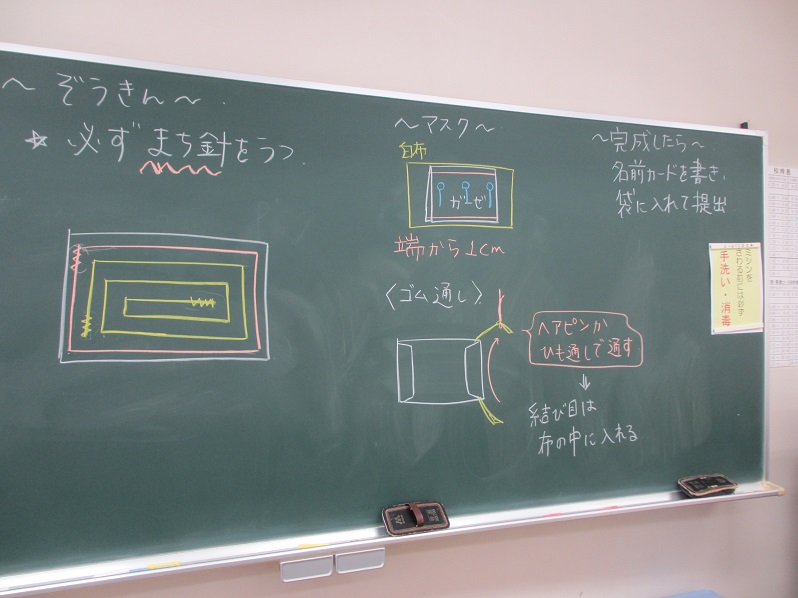 ～ぞうきん～
☆ 必ずまち針をうつ
～マスク～
白布
がーぜ
端から1cm
〈ゴム通し〉
ヘアピンか
ひも通しで通す
⇓
結び目は
布の中に入れる
～完成したら～
名前カードを書き、
袋に入れて提出
ミシンを
さわる前には必ず
手洗い・消毒